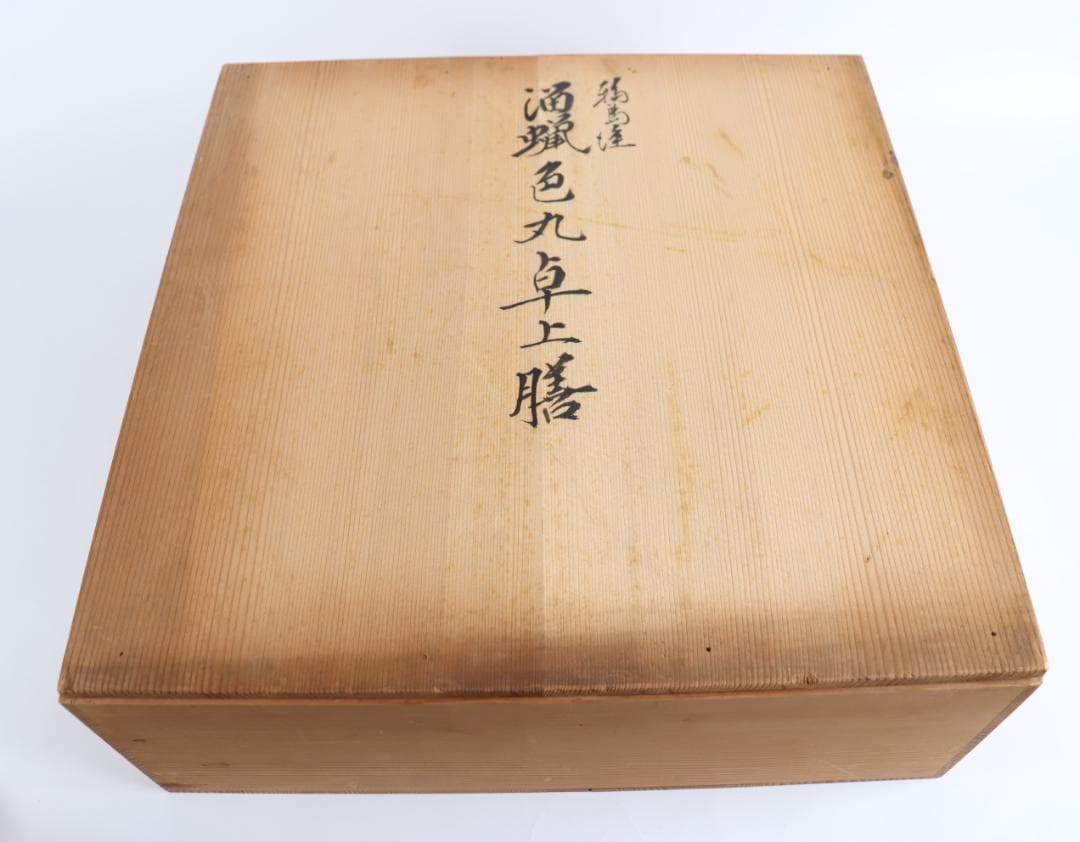 輪島塗
溜蝋色丸卓上膳